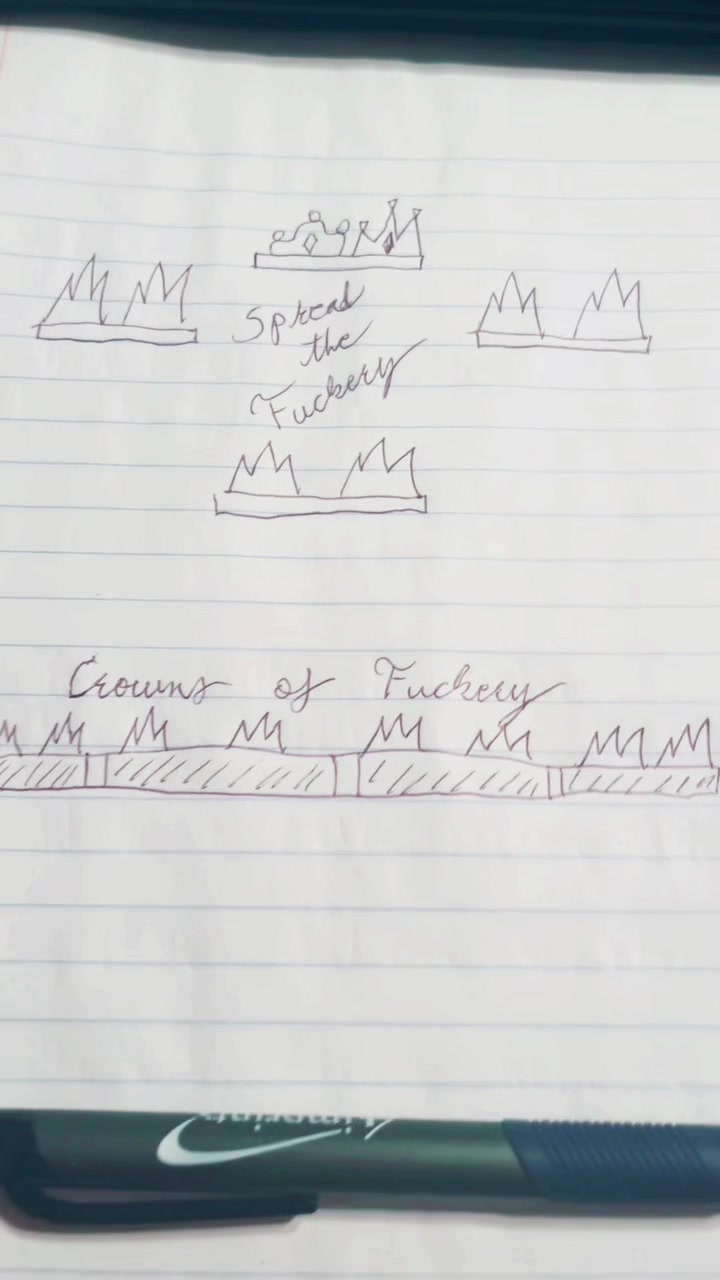 Spread
the
Fuckery
Crowns of Fuckery
4imprint